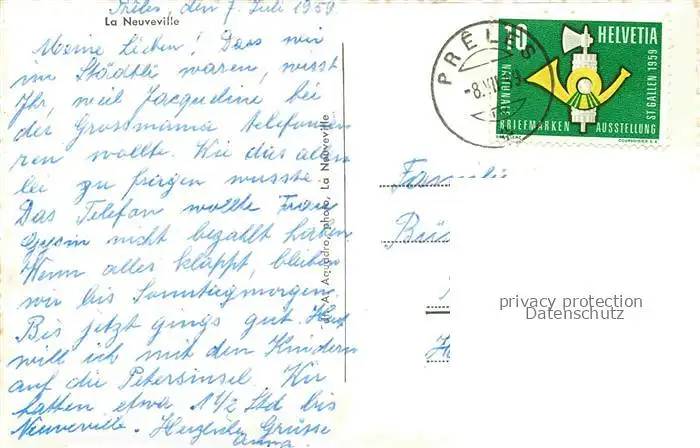 Prêles, den 7. Juli 1959.
La Neuveville
Meine Lieben! Dass wir
im Städtli waren, wisst
Ihr, weil Jacqueline bei
der Grossmama telefonie-
ren wollte. Wie das aller
lei zu fragen wusste.
Das Telefon wollte Frau
Gysin nicht bezahlt haben.
Wenn alles klappt, bleiben
wir bis Sonntagmorgen.
Bis jetzt gings gut. Heut
will ich mit den Kindern
auf die Petersinsel. Wir
hatten etwa 1 1/2 Std bis
Neuveville. Herzliche Grüsse
Anna
A. Acquadro, photo, La Neuveville
PRÊLES
-8.VII
10 HELVETIA
NATIONALE
BRIEFMARKEN AUSSTELLUNG
ST GALLEN 1959
COURVOISIER S.A.
Familie
privacy protection
Datenschutz